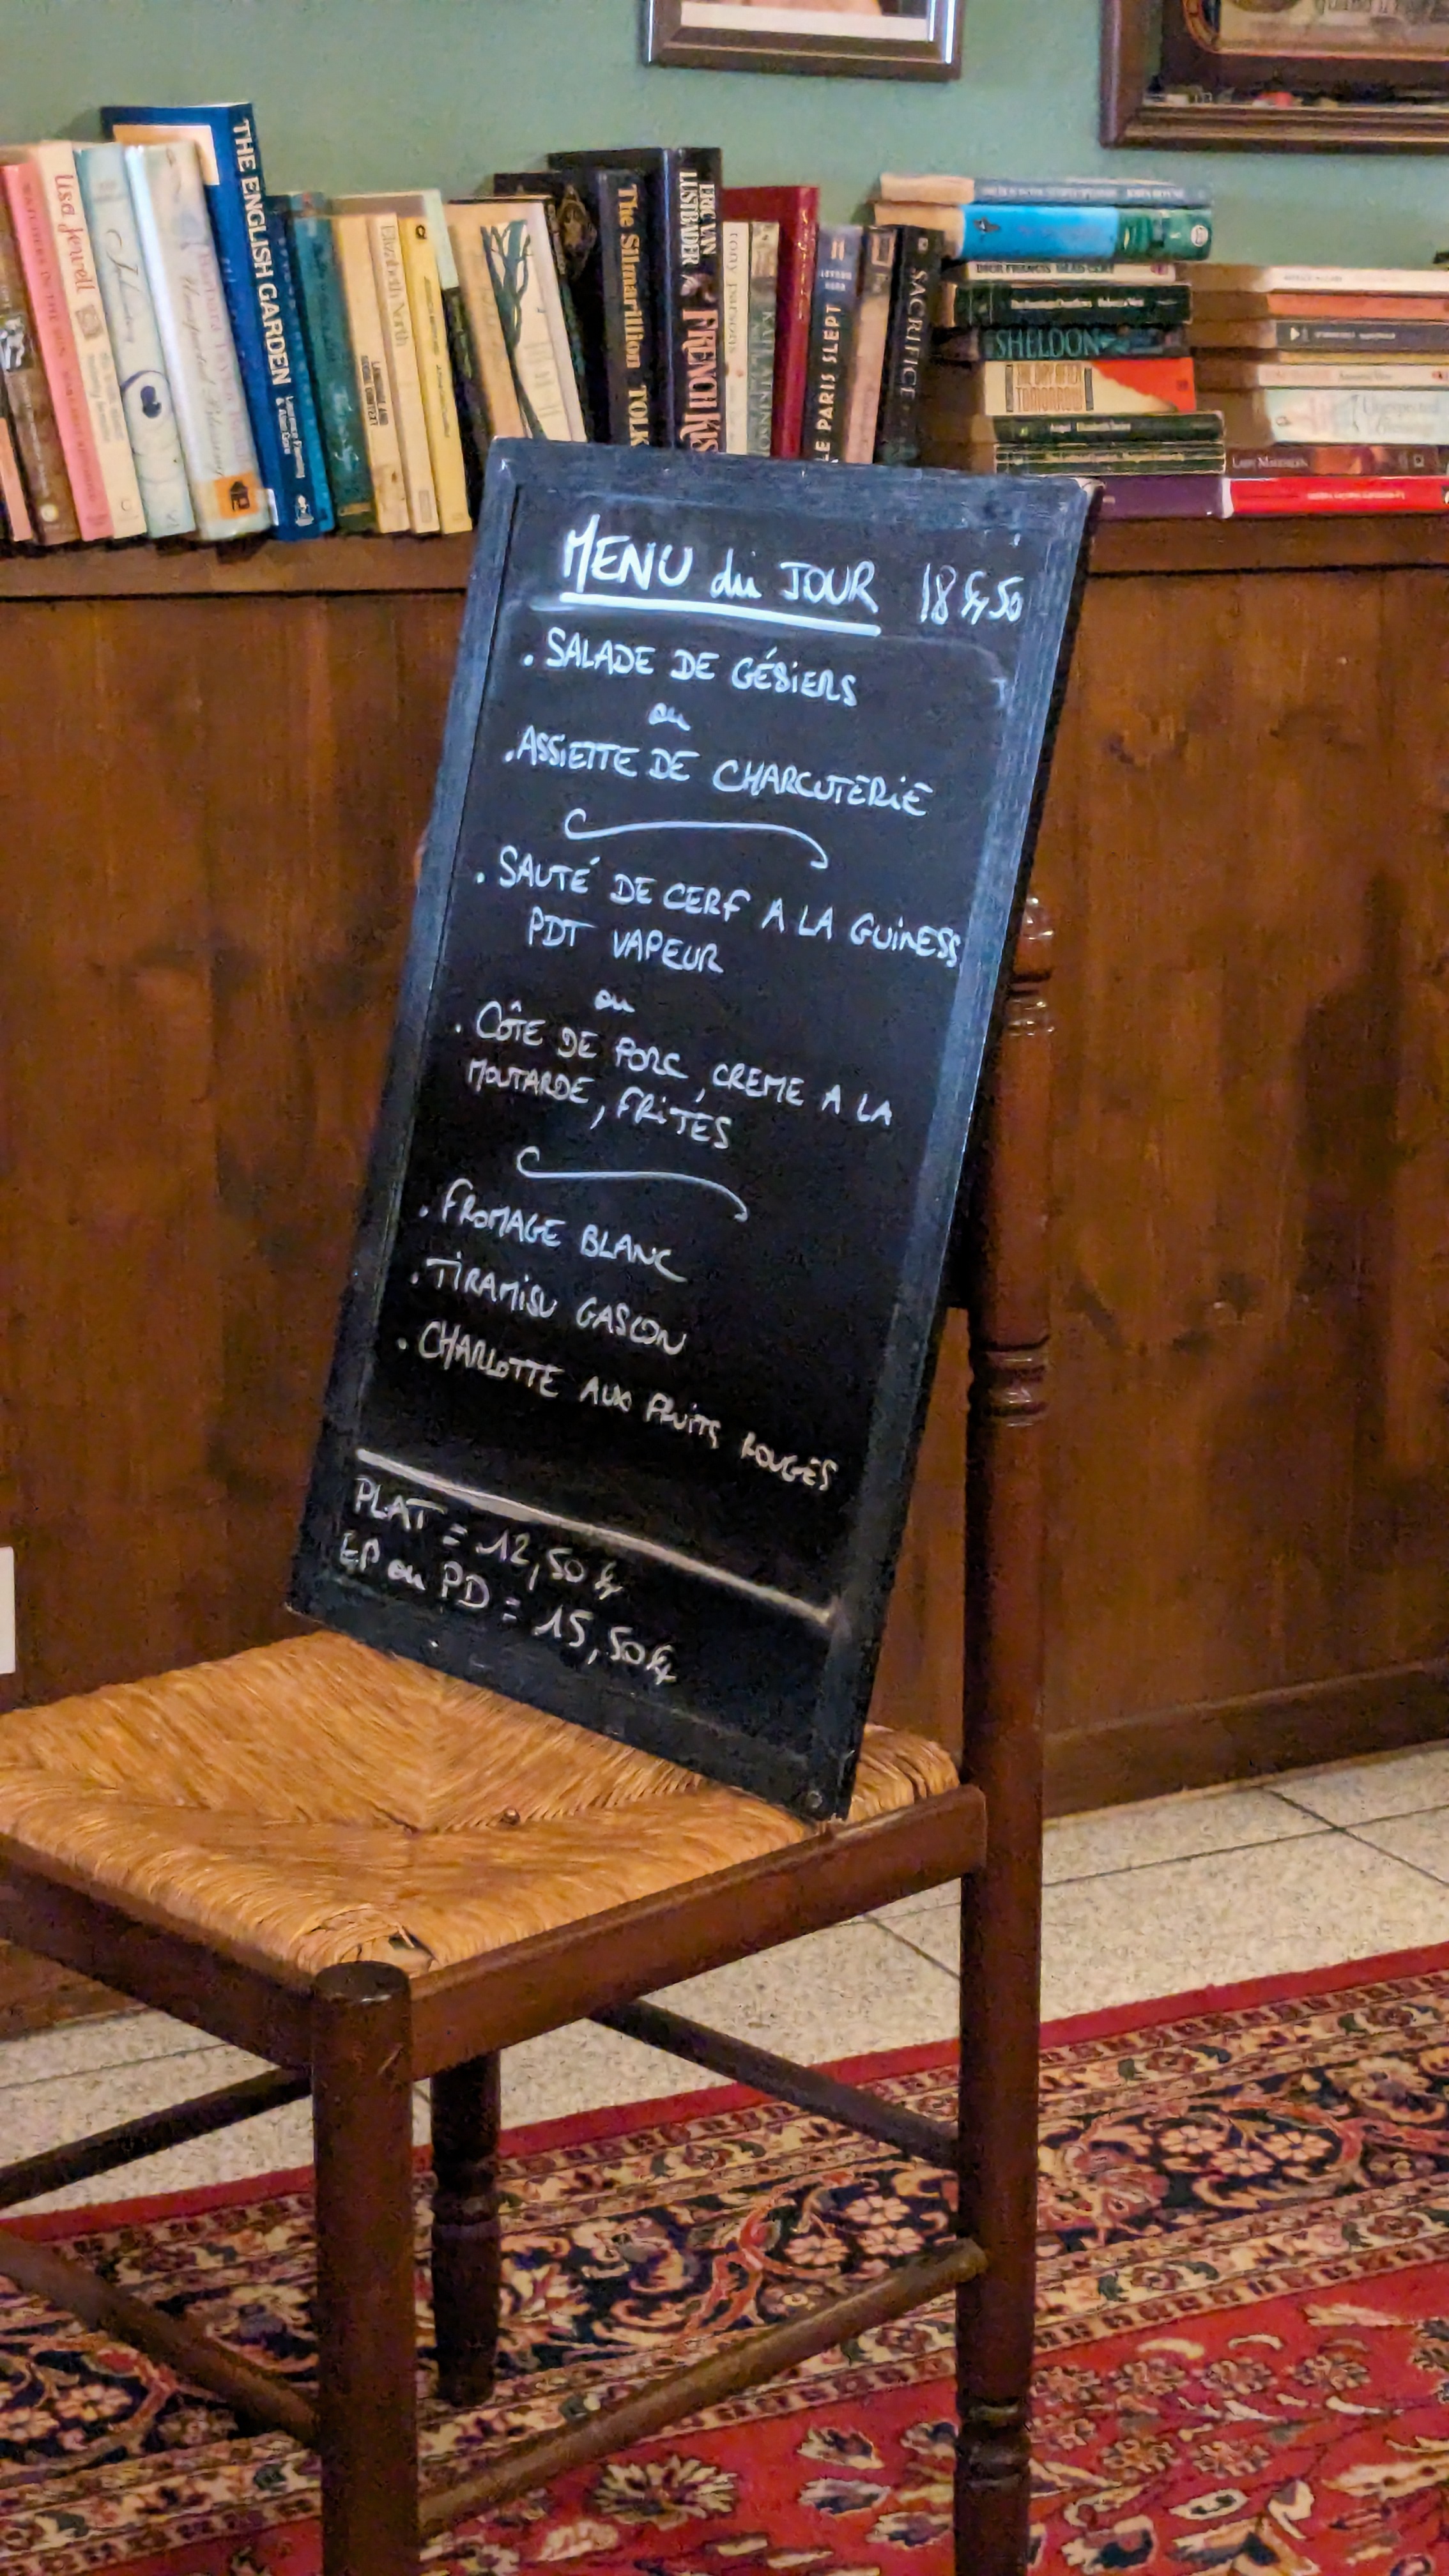 THE ENGLISH GARDEN
Lisa Jewell
Elizabeth North
The Silmarillion TOLK
ERIC VAN
LUSTBADER
FRENCH KISS
tony parsons
LE PARIS SLEPT
SACRIFICE
DICK FRANCIS
SHELDON
TOMORROW
MENU du JOUR 18€50
. SALADE DE GÉSIERS
ou
. ASSIETTE DE CHARCUTERIE
. SAUTÉ DE CERF A LA GUINESS
PDT VAPEUR
ou
. CÔTE DE PORC, CREME A LA
MOUTARDE, FRITES
. FROMAGE BLANC
. TIRAMISU GASCON
. CHARLOTTE AUX FRUITS ROUGES
PLAT = 12,50€
EP ou PD = 15,50€